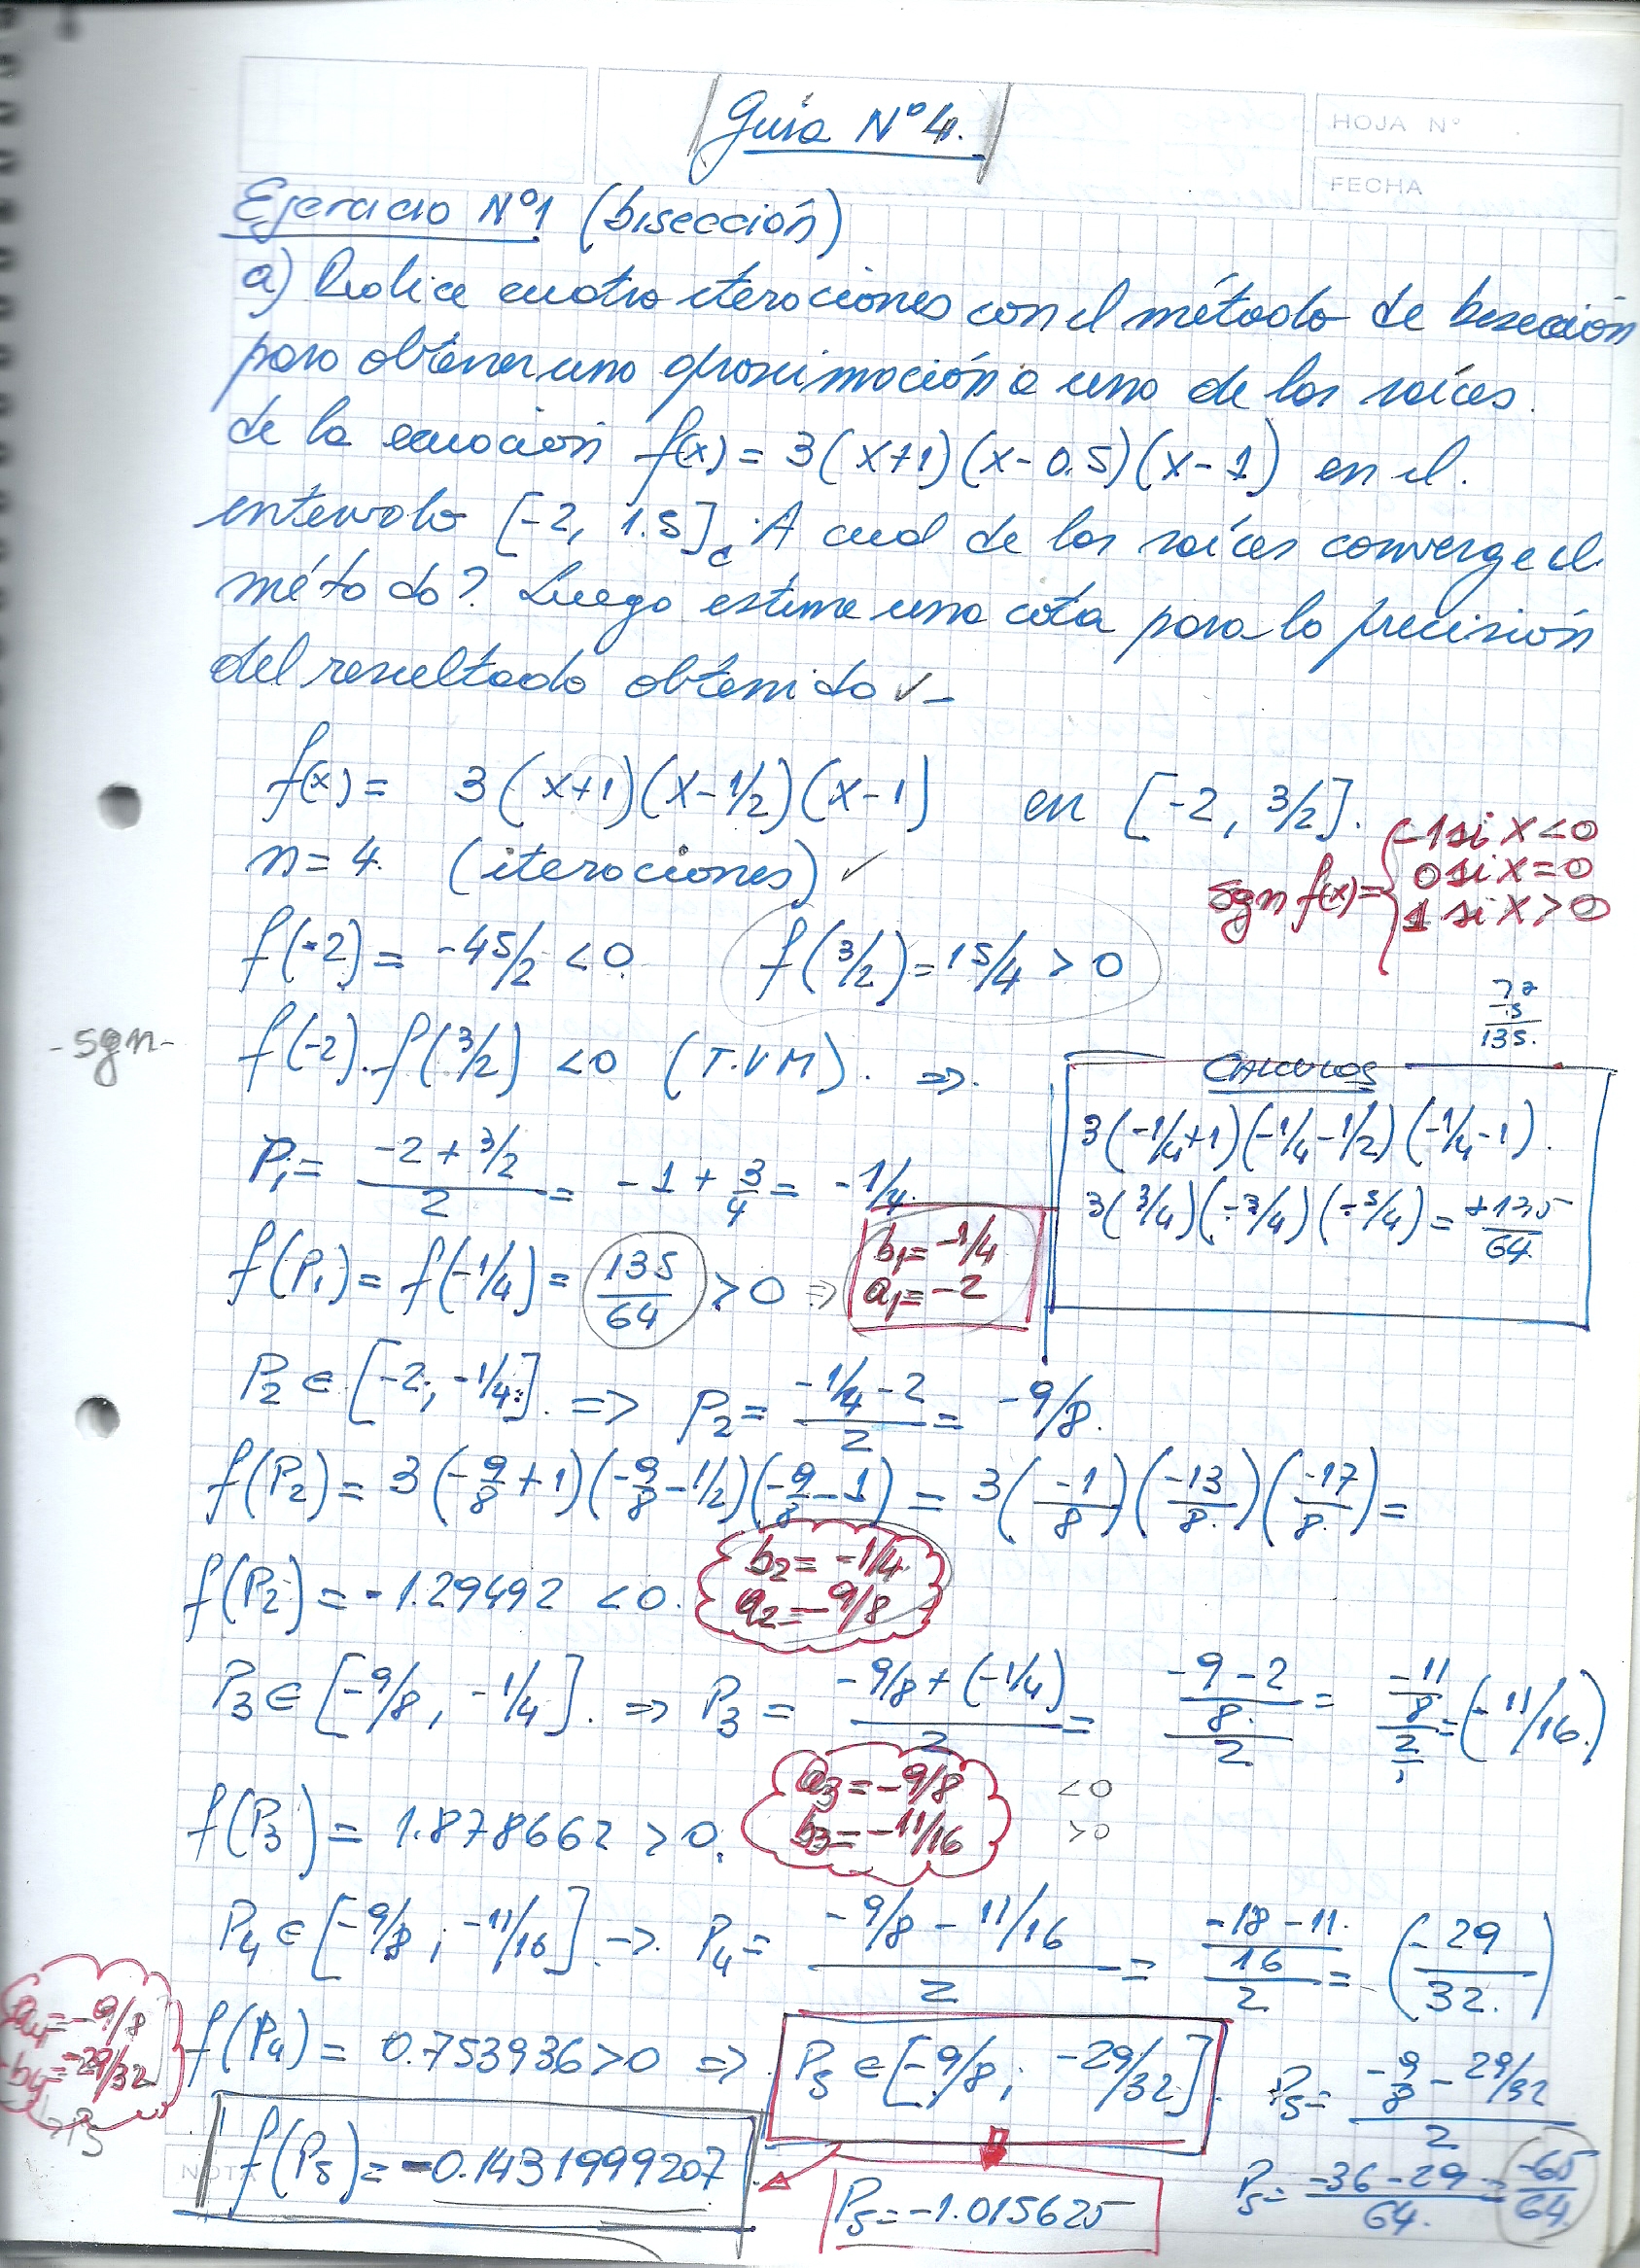 Guia Nº 4.
HOJA Nº
FECHA
Ejercicio Nº1 (bisección)
a) Realice cuatro iteraciones con el método de bisección
para obtener una aproximación a una de las raíces.
de la ecuación f(x) = 3(x+1)(x-0.5)(x-1) en el.
intervalo [-2, 1.5]. ¿A cual de las raíces converge el
método? Luego estime una cota para la precisión
del resultado obtenido ✓-
f(x) = 3(x+1)(x-1/2)(x-1) en [-2, 3/2].
n=4. (iteraciones) ✓
sgn f(x) = { -1 si x<0
0 si x=0
1 si x>0
f(-2) = -45/2 <0 f(3/2) = 15/4 > 0
135.
-sgn-
f(-2).f(3/2) <0 (T.V.M). =>.
CALCULOS
3(-1/4+1)(-1/4-1/2)(-1/4-1).
3(3/4)(-3/4)(-5/4) = +135/64
P1 = (-2 + 3/2)/2 = -1 + 3/4 = -1/4.
f(P1) = f(-1/4) = 135/64 > 0 => b1 = -1/4
a1 = -2
P2 ∈ [-2; -1/4]. => P2 = (-1/4 - 2)/2 = -9/8.
f(P2) = 3(-9/8+1)(-9/8-1/2)(-9/8-1) = 3(-1/8)(-13/8.)(-17/8.) =
f(P2) = -1.29492 <0. b2 = -1/4
a2 = -9/8
P3 ∈ [-9/8, -1/4]. => P3 = (-9/8 + (-1/4))/2 = ((-9-2)/8.)/2 = (-11/8)/(2/1) = (-11/16.)
f(P3) = 1.878662 > 0. a3 = -9/8 <0
b3 = -11/16 >0
P4 ∈ [-9/8; -11/16] -> P4 = (-9/8 - 11/16)/2 = ((-18-11.)/16)/2 = (-29/32.)
a4 = -9/8
b4 = -29/32
f(P4) = 0.753936 > 0 => P5 ∈ [-9/8; -29/32]. P5 = (-9/8 - 29/32)/2
f(P5) = -0.1431999207
P5 = -1.015625
P5 = (-36-29)/64. = -65/64
NOTA